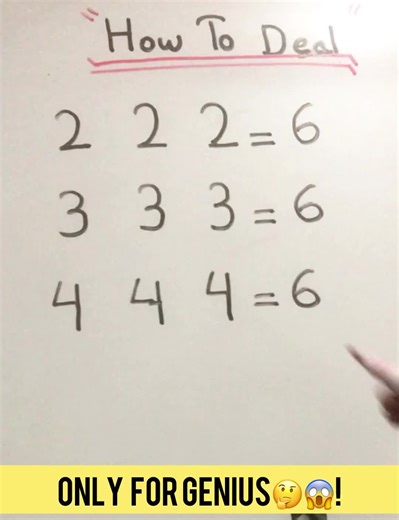 "How To Deal"
2 2 2 = 6
3 3 3 = 6
4 4 4 = 6
ONLY FOR GENIUS🤔😱!